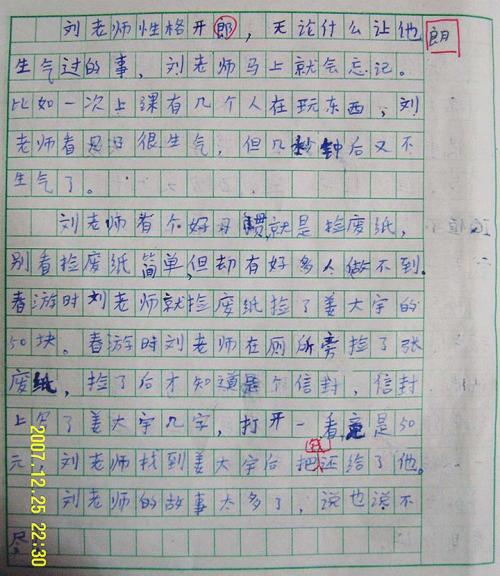 刘老师性格开郎，无论什么让他 朗
生气过的事，刘老师马上就会忘记。
比如一次上课有几个人在玩东西，刘
老师看见了很生气，但几秒钟后又不
生气了。
刘老师有个好习惯就是捡废纸，
别看捡废纸简单，但却有好多人做不到。
春游时刘老师就捡废纸捡了姜大宇的
50块。春游时刘老师在厕所旁捡了张
废纸，捡了后才知道是个信封，信封
上写了姜大宇几字，打开一看竟是50
元。刘老师找到姜大宇后把钱还给了他。
刘老师的故事太多了，说也说不
尽
2007.12.25 22:30